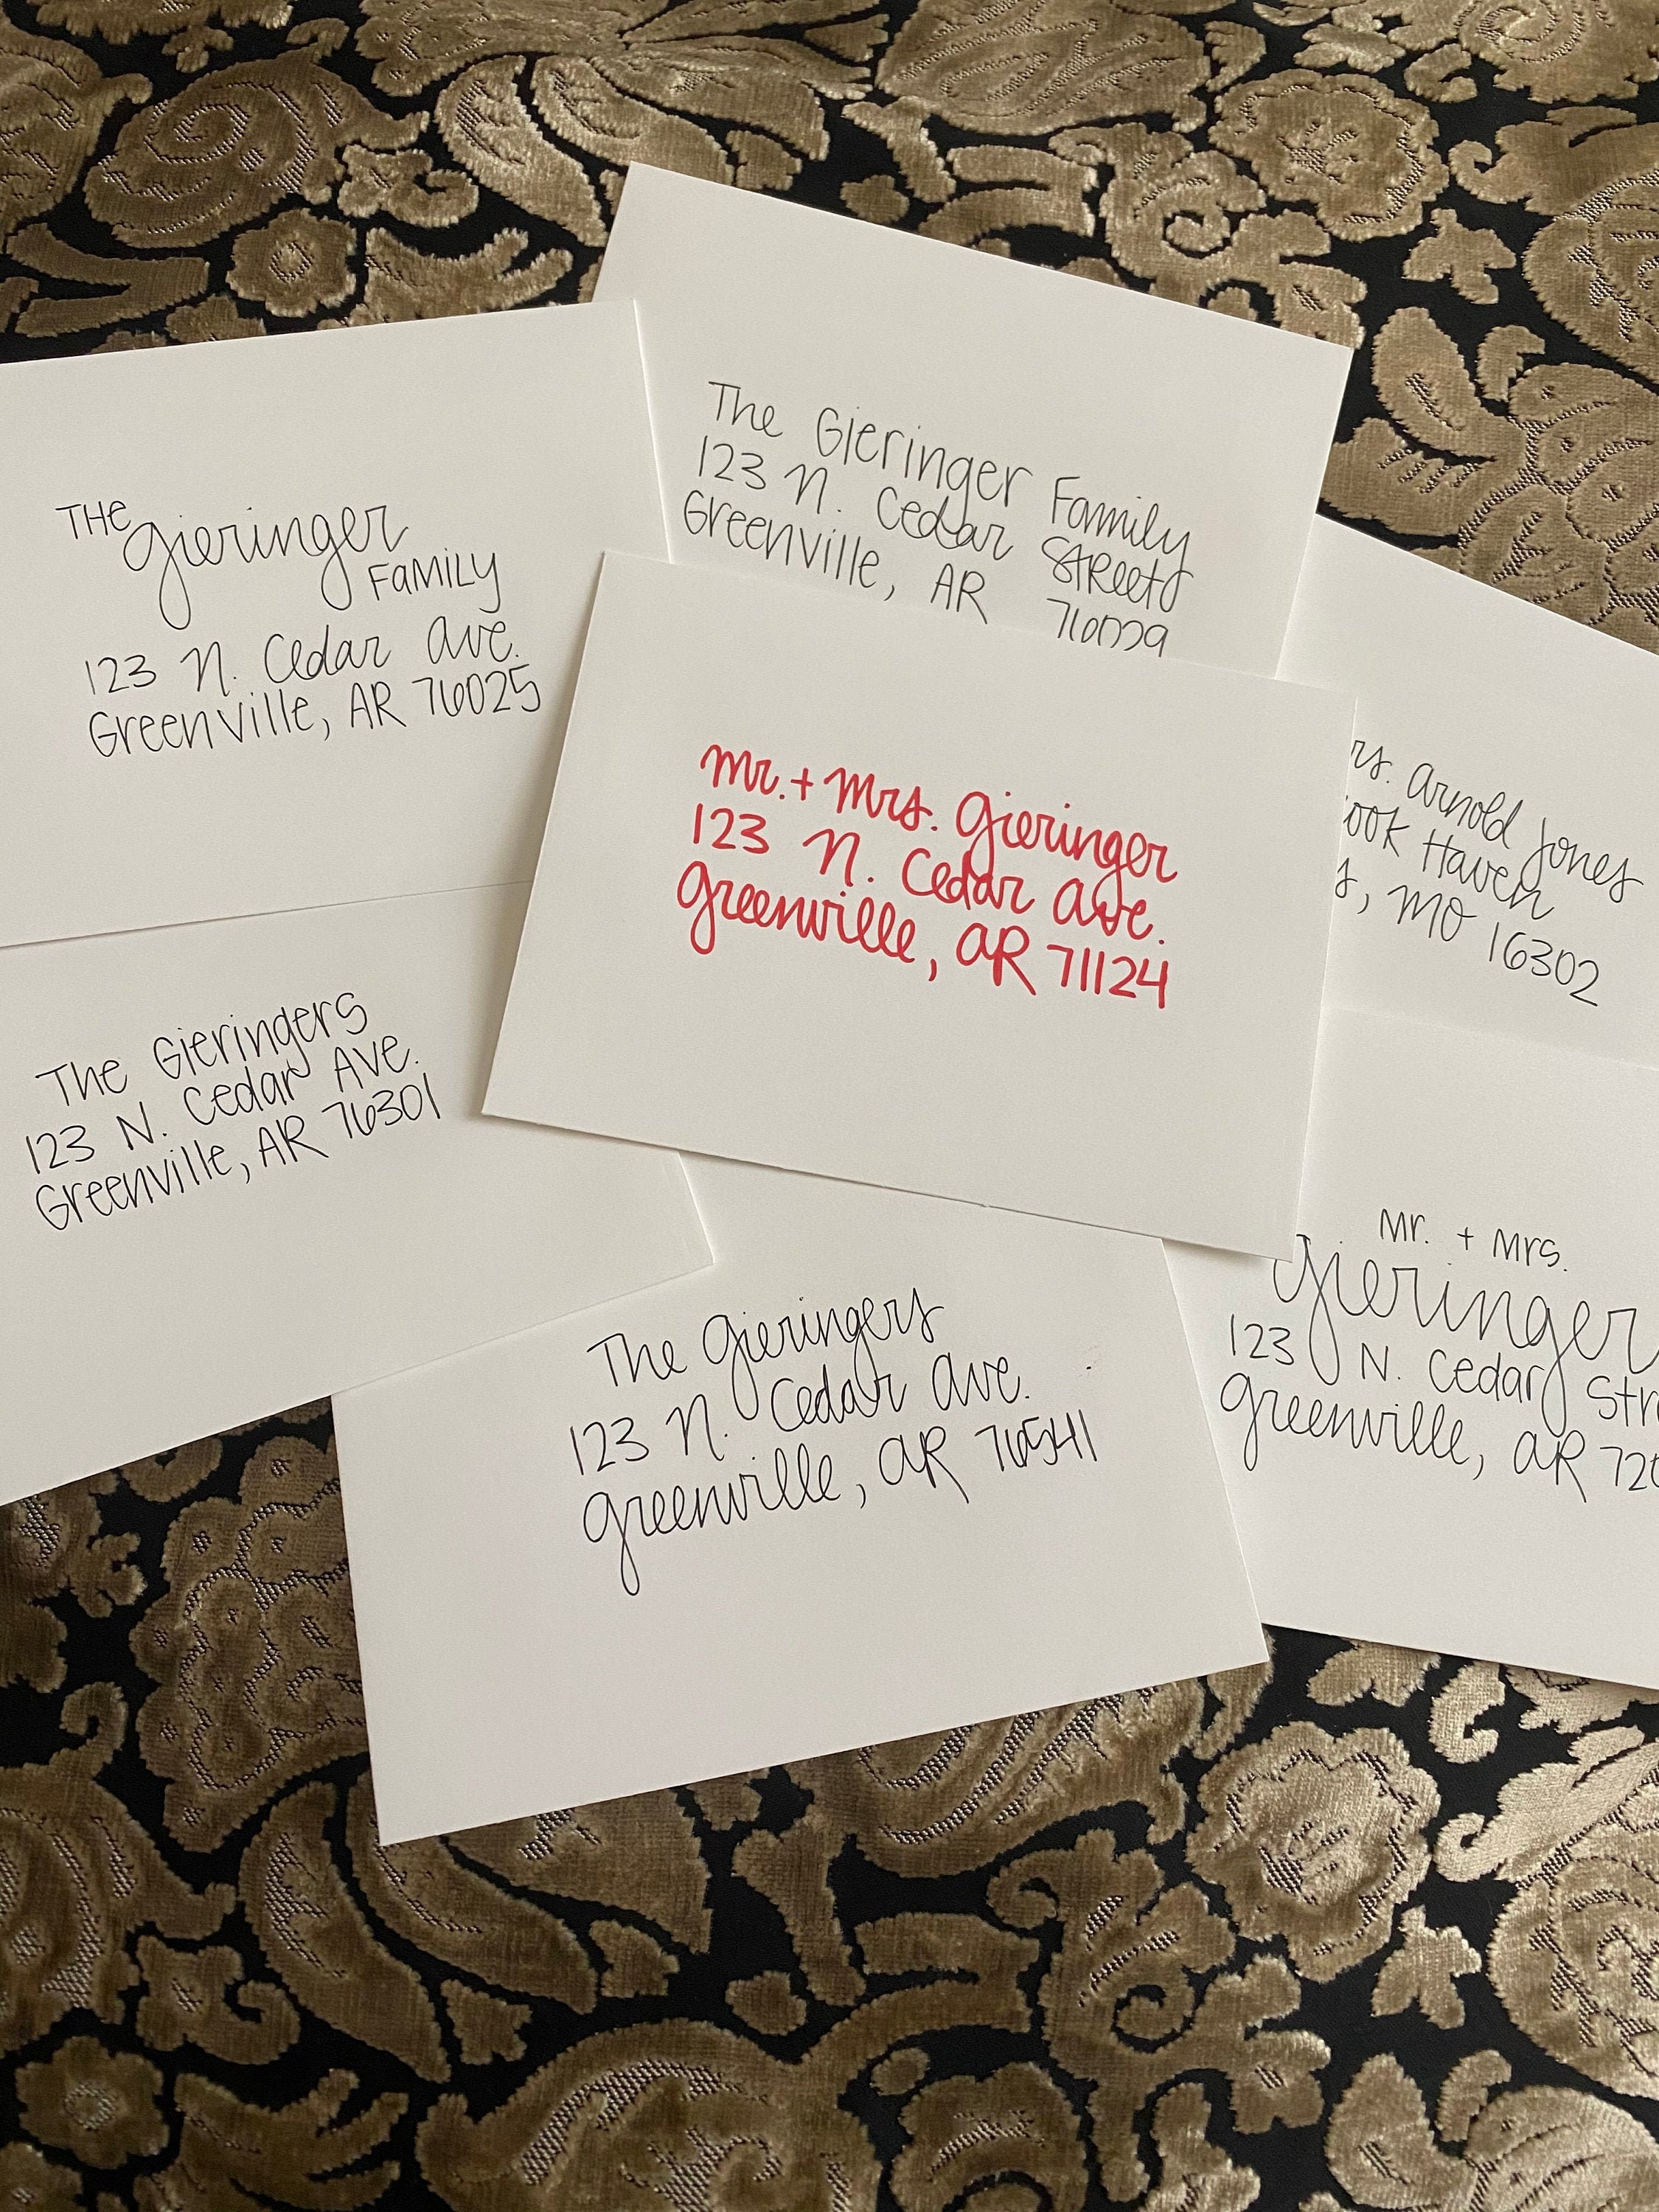 The Gieringer Family
123 N. Cedar Street
Greenville, AR
THE
Gieringer
FAMILY
123 N. Cedar Ave.
Greenville, AR 76025
Mr. + Mrs. Gieringer
123 N. Cedar Ave.
Greenville, AR 71124
Arnold Jones
Haven
MO 16302
The Gieringers
123 N. Cedar Ave.
Greenville, AR 76301
Mr. + Mrs.
Gieringer
123 N. Cedar
Greenville, AR
The Gieringers
123 N. Cedar Ave.
Greenville, AR 76541